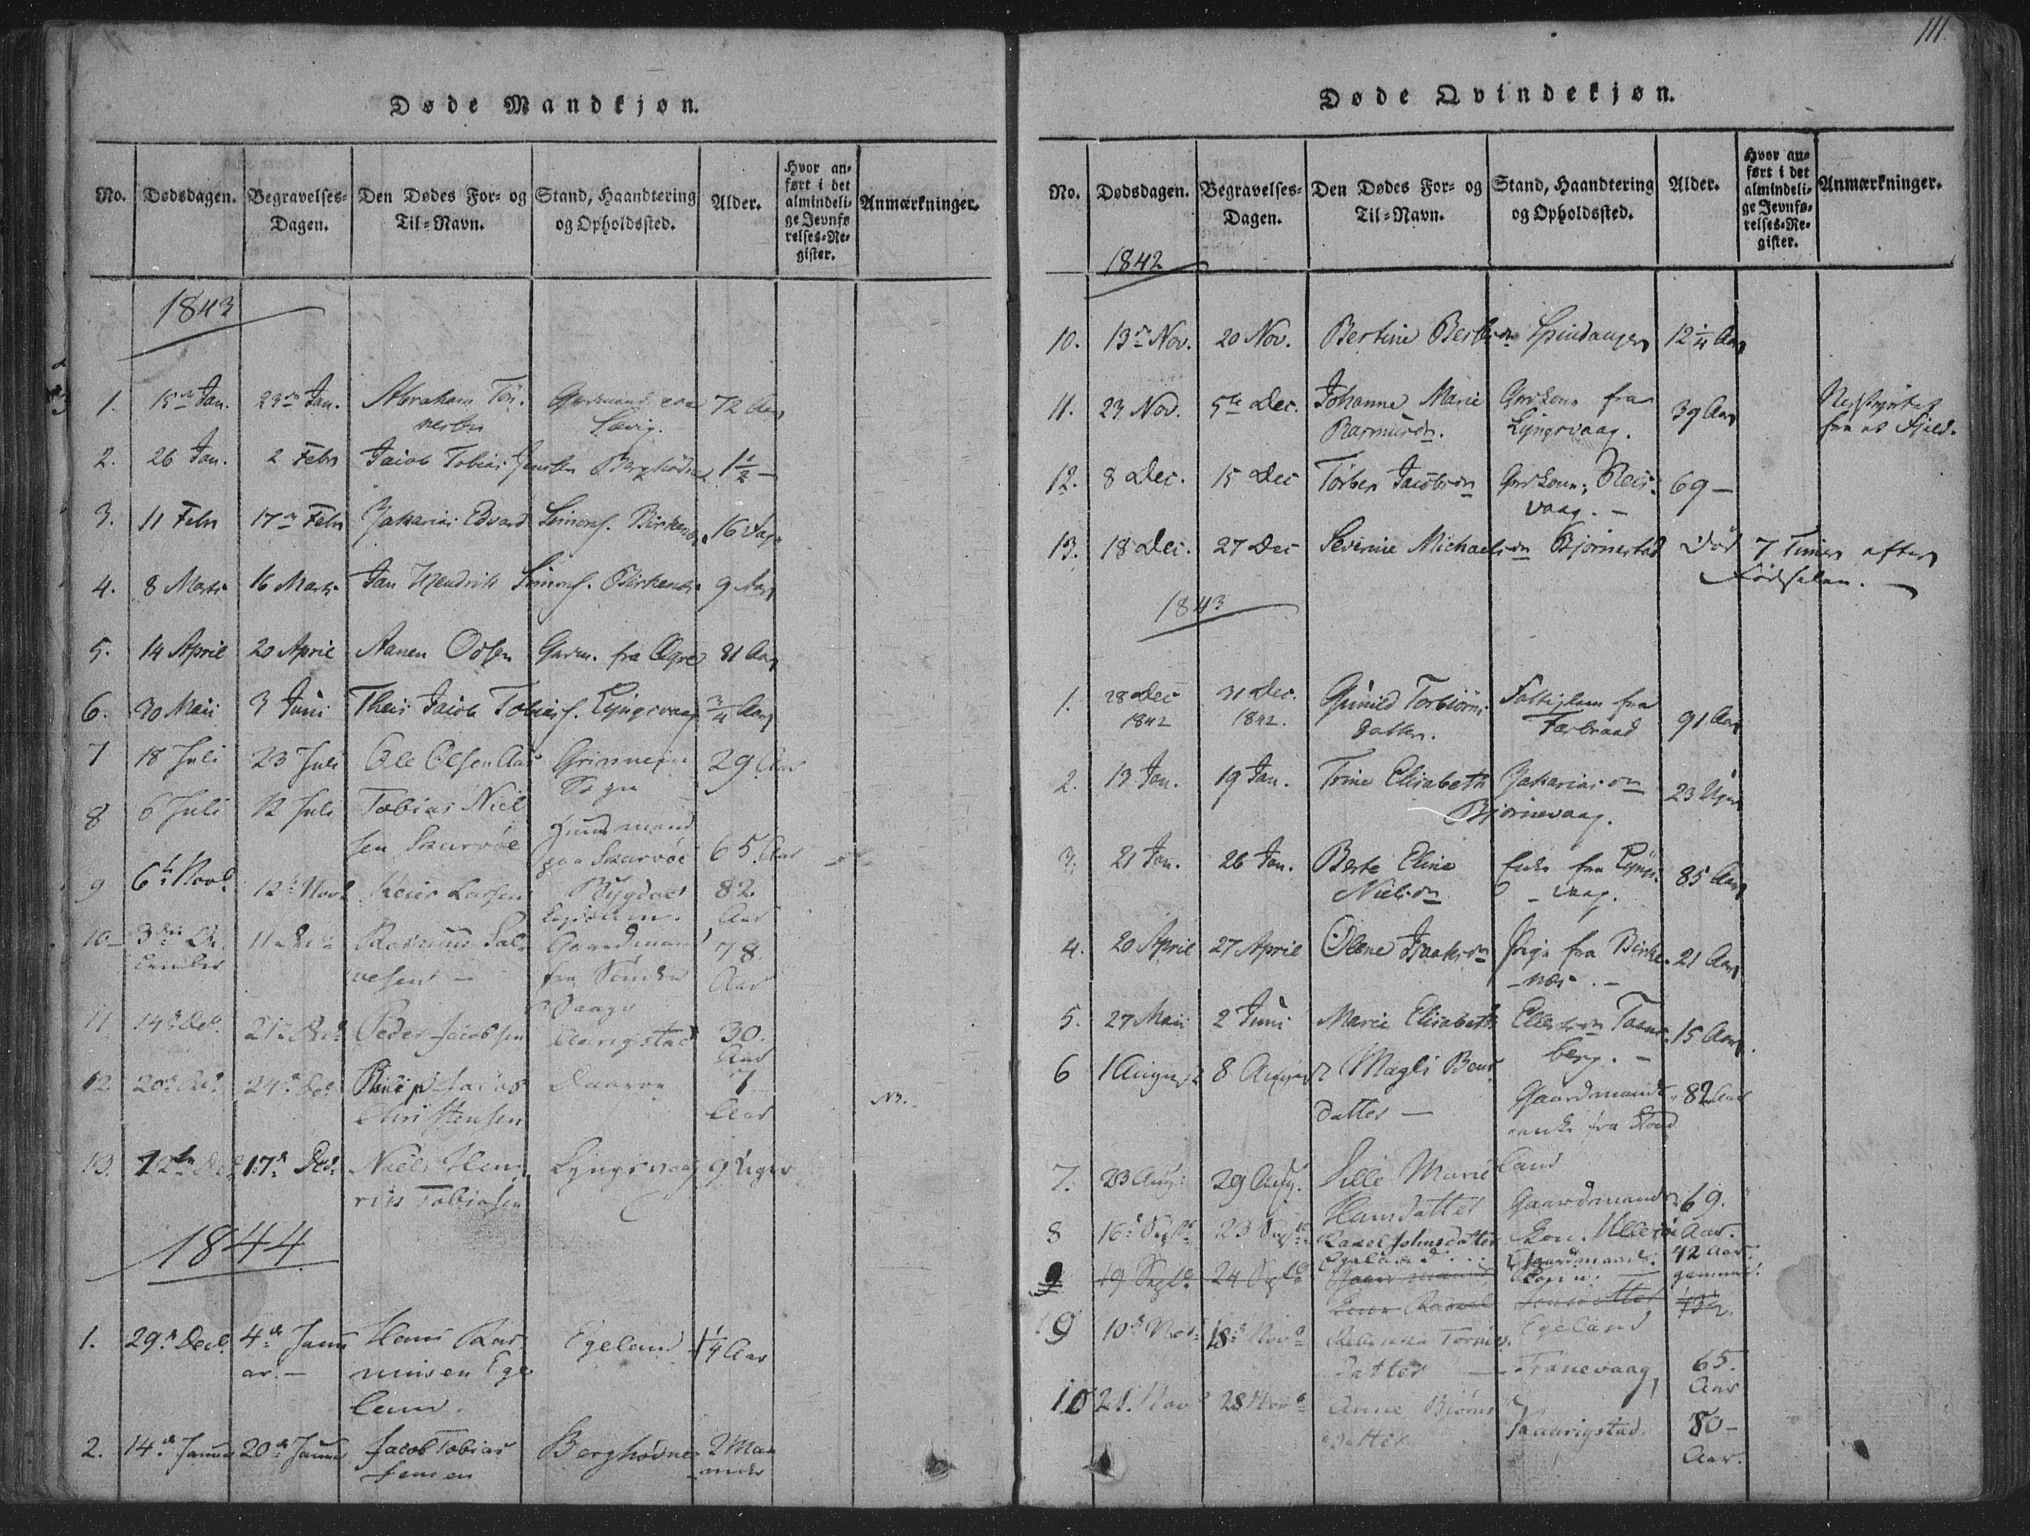 111
Døde Mandkjøn.
No. Dødsdagen. Begravelses-Dagen. Den Dødes For- og Til-Navn. Stand, Haandtering og Opholdssted. Alder. Hvor anført i det almindelige Jevnførelses-Register. Anmærkninger.
1843
1. 15 Jan. 23 Jan. Abraham Tön-
nesen Gaardmand paa Lövig. 72 Aar
2. 26 Jan. 2 Febr Jacob Tobias Jensen Berghödne 1½ —
3. 11 Febr 17 Febr Zakarias Edvard Simons. Birkenes 16 Dage
4. 8 Marts 16 Marts Jan Hendrik Simons. Birkenes 9 Aar
5. 14 April 20 April Aanen Olsen Garm. fra Agre 81 Aar
6. 30 Mai 3 Juni Theis Jacob Tobias. Lyngsvaag ¾ Aar
7 18 Juli 23 Juli Ole Olsen Aas Grimnem
Sogn 29 Aar
8 6 Juli 12 Juli Tobias Niel
sen Skarvöe Huusmand
paa Skarvöe 65 Aar
9 6 Novb. 12 Novb Reier Larsen Bygdens
Lægdlem. 82
Aar
10 3 De-
cember 11 Dec Rasmus Sal-
vesen — Gaardmand
fra Söndre
Vaage 78
Aar
11 14 Dec. 21 Dec Peder Jacobsen Aurigstad 30
Aar
12 20 Dec. 24 Dec Philip Jacob
Christensen 7
Aar
13. 12 Dec 17 Dec. Niels Hen-
rik Tobiasen Lyngsvaag 9 Uger
1844
1. 29 Decb. 4 Janu
ar. — Hans Ras
musen Ege
land. Egeland ¼ Aar
2. 14 Januar 20 Januar Jacob Tobias
Jensen Berghödne 2 Maa
neder
Døde Qvindekjøn.
No. Dødsdagen. Begravelses-Dagen. Den Dødes For- og Til-Navn. Stand, Haandtering og Opholdssted. Alder. Hvor anført i det almindelige Jevnførelses-Register. Anmærkninger.
1842
10. 13 Nov. 20 Nov. Bertine Spindanger 12¼ Aar
11. 23 Nov. 5te Dec. Johanne Marie
Rasmusdn. Grdkone fra
Lyngsvaag. 39 Aar Nedstyrtet
fra et Fjeld.
12. 8 Dec. 15 Dec Torber Jacobsdn Grdkone, Reis-
vaag. — 69 —
13. 18 Dec. 27 Dec Severine Michaelsdn Bjørnestad Død 7 Timer efter
Fødselen. —
1843
1. 28 Dec
1842 31 Dec.
1842. Gunild Torbiörns
datter. Fattiglem fra
Farbraad 91 Aar
2. 13 Jan. 19 Jan. Trine Elisabeth Zakariasdn
Bjørnevaag. 23 Uger
3. 21 Jan. 26 Jan. Berte Eline
Nielsdn Enke fra Lyngs-
vaag. 85 Aar
4. 20 April 27 April Olene Isaksdn Pige fra Birke-
næs. — 21 Aar
5. 27 Mai 2 Juni Marie Elisabeth Ellefsdn Taane-
berg. — 15 Aar
6 1 August 8 August Magli Bens
datter — Gaardmands
enke fra Stad
land 82 Aar
7. 23 Aug. 29 Aug. Sille Marie
Hansdatter Gaardmands
Kone. 69
Aar.
8 16 Sept 23 Sept Rakel Johnsdatter
Egeland Gaardmands
Kone. 42 Aar
gammel.
9 19 Sept. 24 Sept Gaardmands
Kone Rakel Jonsdatter
Egeland 42
9 10 Nov. 18 Nov Tönnes
datter — Tranevaag 65
Aar
10 21 Nov 28 Nov Anne Björns
datter Haurigstad. 80 —
Aar.